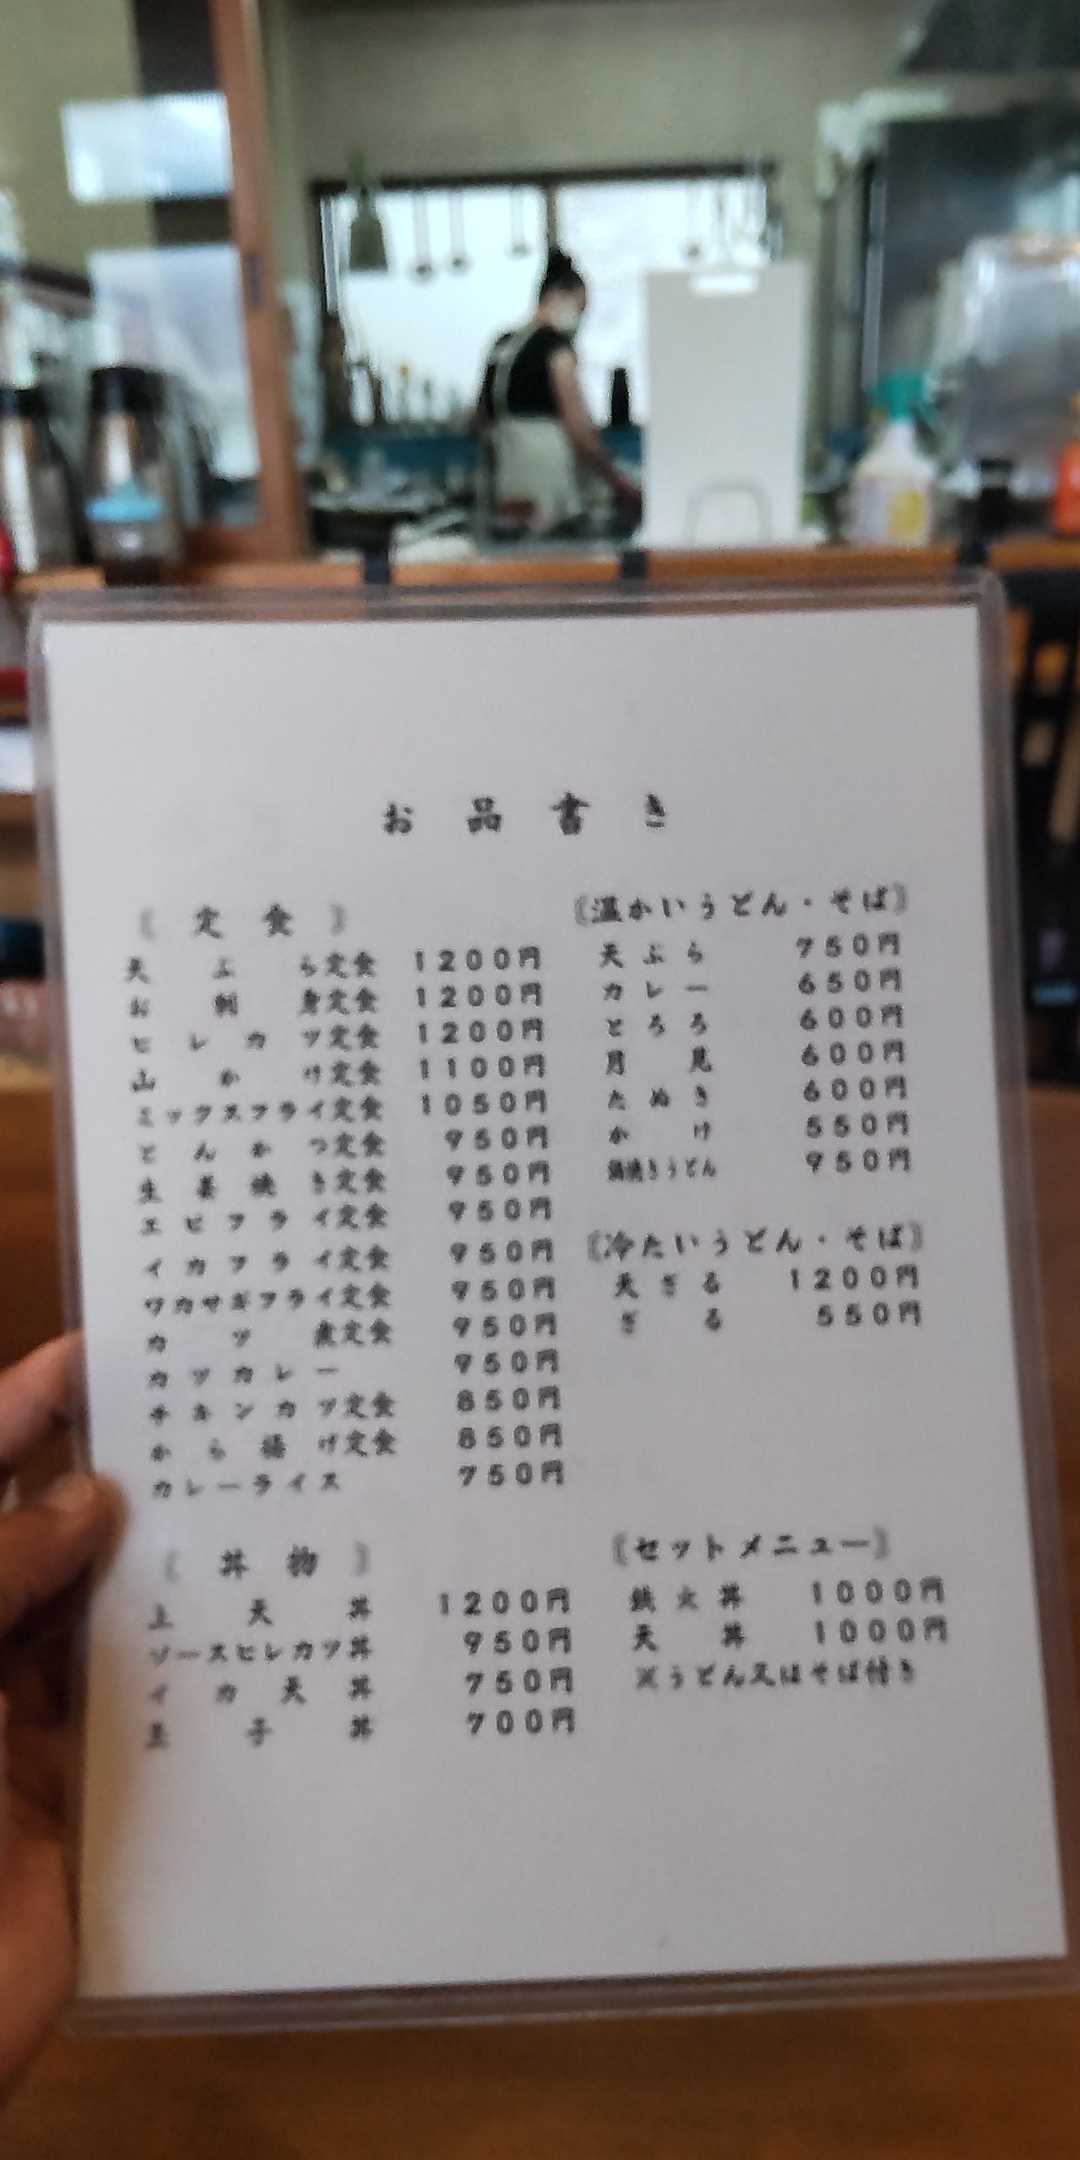 お品書き
〘定食〙
天ぷら定食 1200円
お刺身定食 1200円
ヒレカツ定食 1200円
山かけ定食 1100円
ミックスフライ定食 1050円
とんかつ定食 950円
生姜焼き定食 950円
エビフライ定食 950円
イカフライ定食 950円
ワカサギフライ定食 950円
カツ煮定食 950円
カツカレー 950円
チキンカツ定食 850円
から揚げ定食 850円
カレーライス 750円
〘丼物〙
上天丼 1200円
ソースヒレカツ丼 950円
イカ天丼 750円
玉子丼 700円
〘温かいうどん・そば〙
天ぷら 750円
カレー 650円
とろろ 600円
月見 600円
たぬき 600円
かけ 550円
鍋焼きうどん 950円
〘冷たいうどん・そば〙
天ざる 1200円
ざる 550円
〘セットメニュー〙
鉄火丼 1000円
天丼 1000円
※うどん又はそば付き